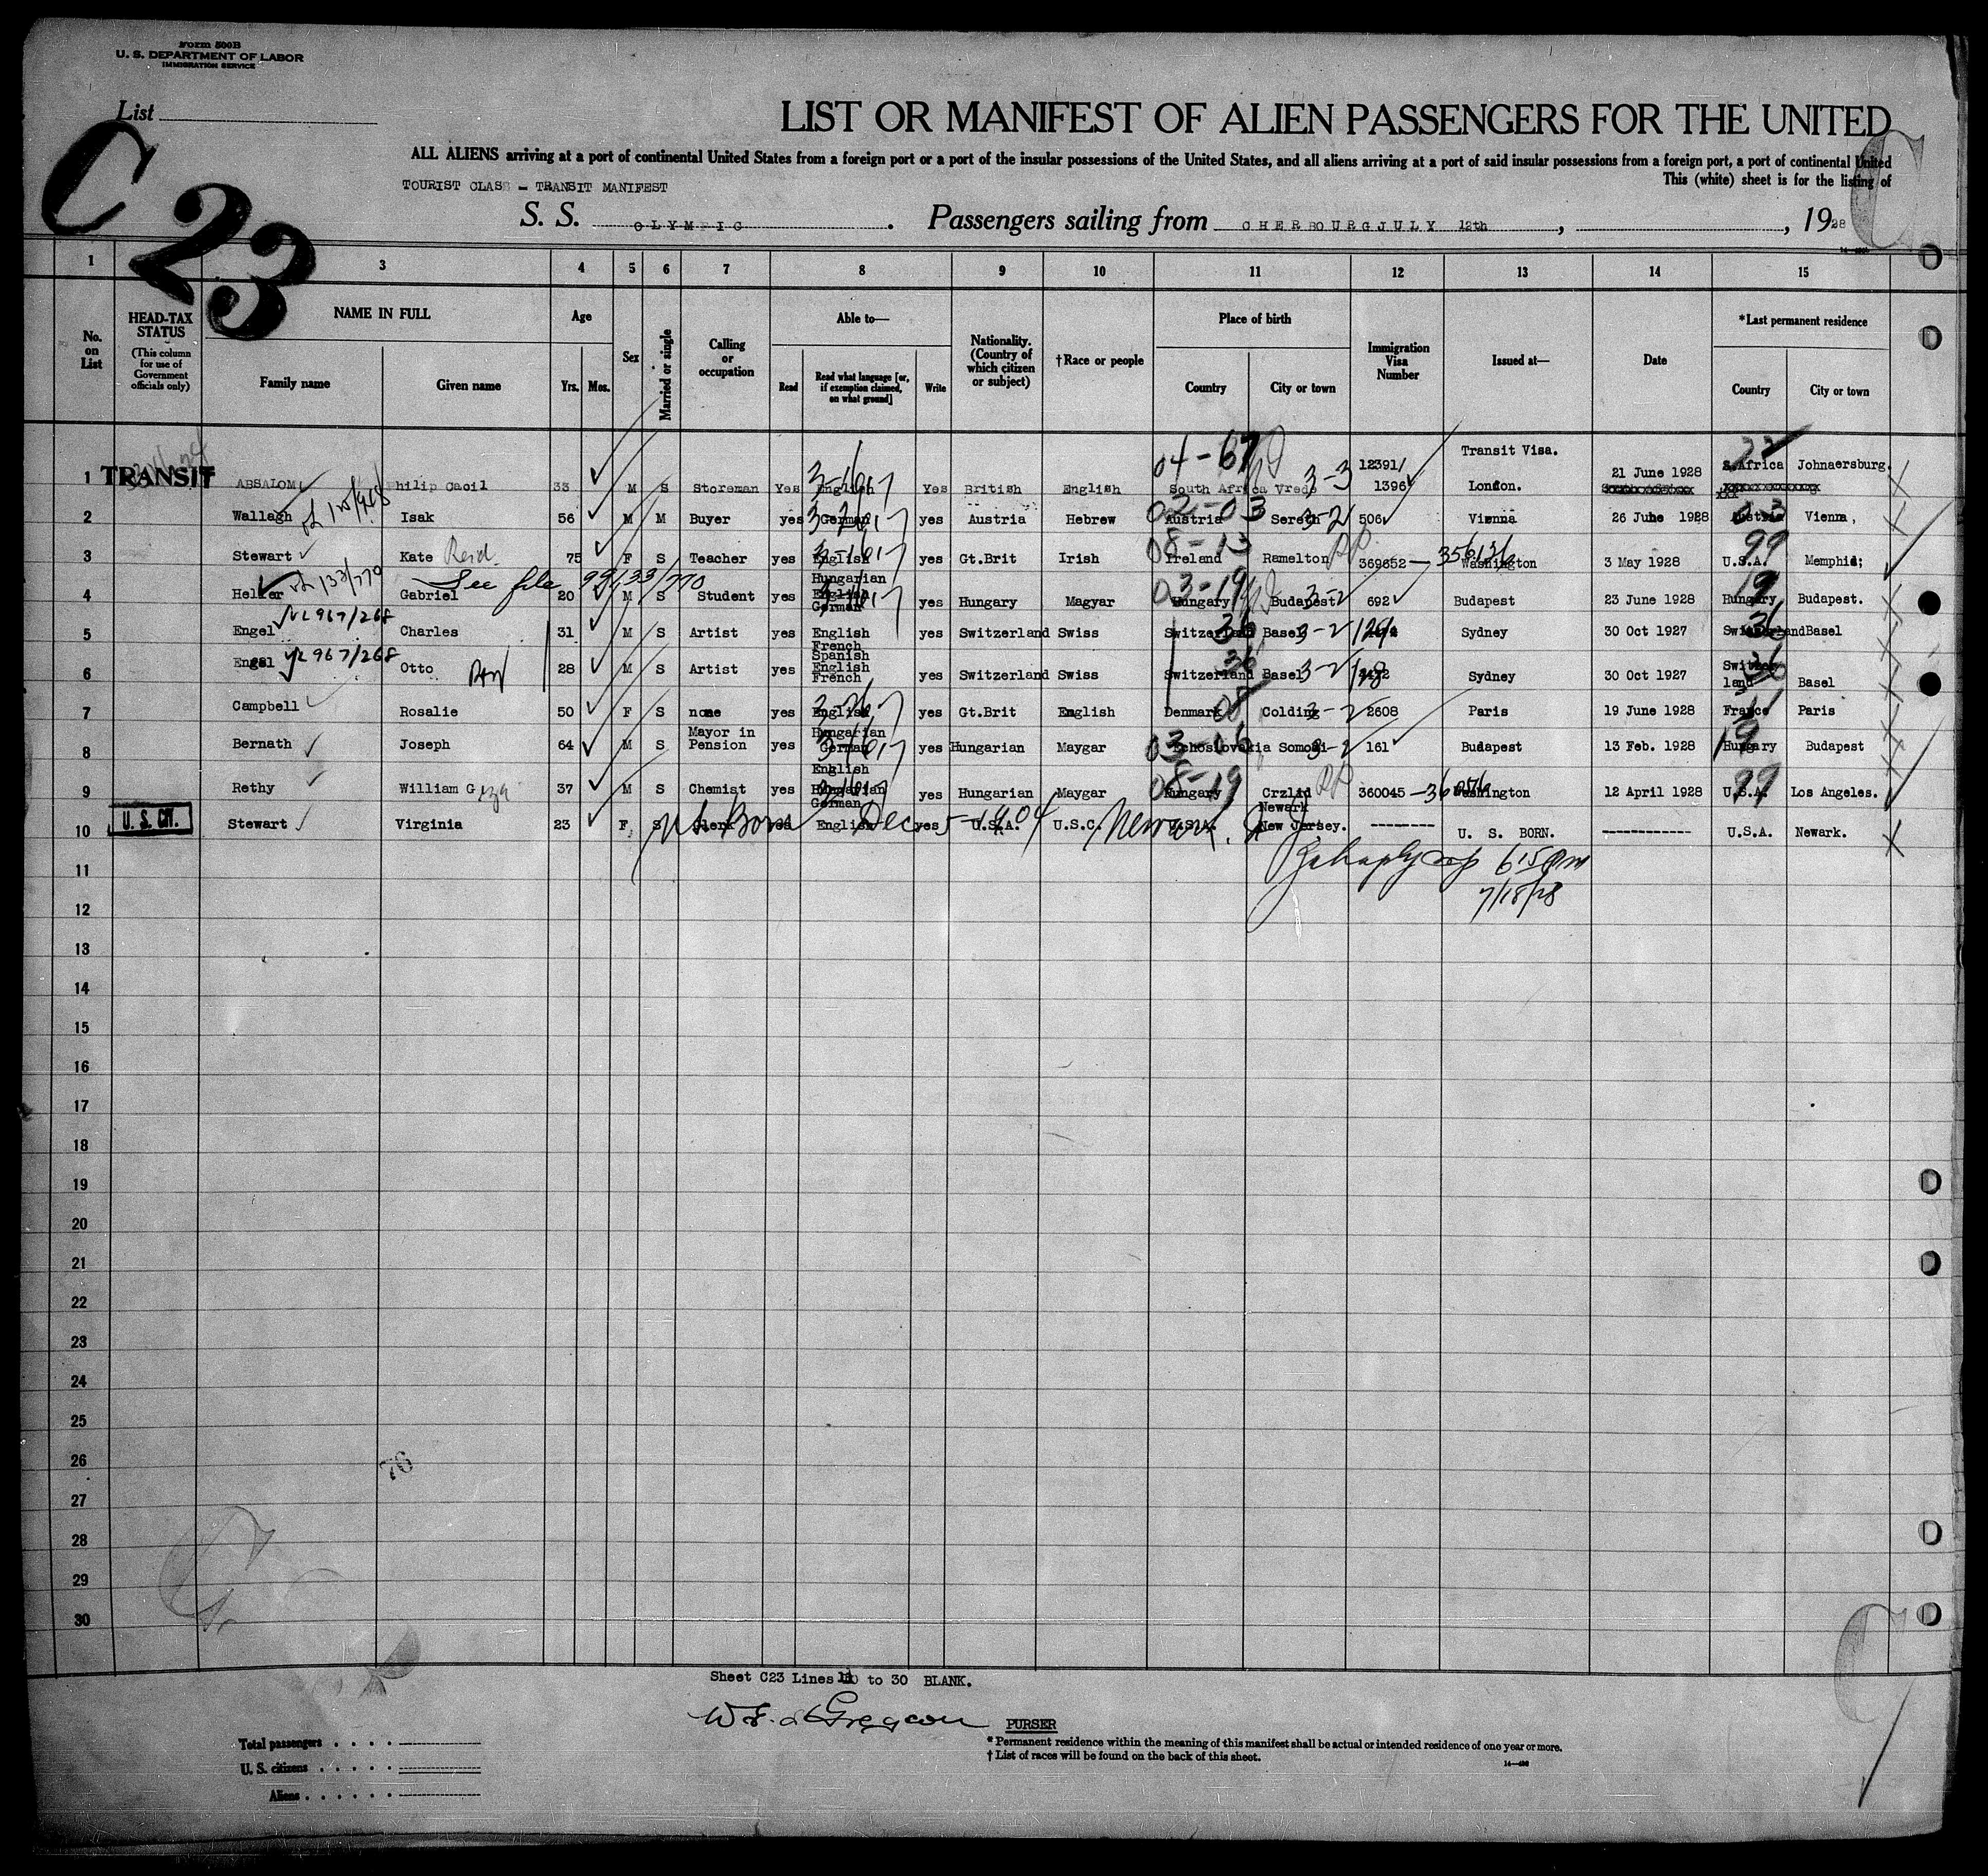 Form 500B
U. S. DEPARTMENT OF LABOR
IMMIGRATION SERVICE
List
C 23
LIST OR MANIFEST OF ALIEN PASSENGERS FOR THE UNITED
ALL ALIENS arriving at a port of continental United States from a foreign port or a port of the insular possessions of the United States, and all aliens arriving at a port of said insular possessions from a foreign port, a port of continental United
This (white) sheet is for the listing of
TOURIST CLASS - TRANSIT MANIFEST
S. S. OLYMPIC. Passengers sailing from CHERBOURG JULY 12th, , 1928
1 3 4 5 6 7 8 9 10 11 12 13 14 15
No. on List
HEAD-TAX STATUS
(This column for use of Government officials only)
NAME IN FULL
Family name
Given name
Age
Yrs. Mos.
Sex
Married or single
Calling or occupation
Able to—
Read
Read what language [or, if exemption claimed, on what ground]
Write
Nationality. (Country of which citizen or subject)
†Race or people
Place of birth
Country
City or town
Immigration Visa Number
Issued at—
Date
*Last permanent residence
Country
City or town
Transit Visa.
1 TRANSIT ABSALOM Philip Cecil 33 M S Storeman Yes English Yes British English South Africa Vrede 12391/ 1396 London. 21 June 1928 S.Africa Johnaersburg.
04-67 3-3
2 Wallagh Isak 56 M M Buyer yes German yes Austria Hebrew Austria Sereth 506 Vienna 26 June 1928 Austria Vienna,
02-03 3-2
3 Stewart Kate Reid 75 F S Teacher yes English yes Gt.Brit Irish Ireland Ramelton 369652 Washington 3 May 1928 U.S.A. Memphis;
08-13 99
See file 99133/770
4 Heller Gabriel 20 M S Student yes Hungarian English German yes Hungary Magyar Hungary Budapest 692 Budapest 23 June 1928 Hungary Budapest.
03-19 3-2 19
967/268
5 Engel Charles 31 M S Artist yes English French yes Switzerland Swiss Switzerland Basel Sydney 30 Oct 1927 Switzerland Basel
36 3-2 36
967/268
6 Engel Otto 28 M S Artist yes Spanish English French yes Switzerland Swiss Switzerland Basel Sydney 30 Oct 1927 Switzerland Basel
36 3-2 36
7 Campbell Rosalie 50 F S none yes English yes Gt.Brit English Denmark Colding 2608 Paris 19 June 1928 France Paris
3-2
8 Bernath Joseph 64 M S Mayor in Pension yes Hungarian German yes Hungarian Maygar Somogi 161 Budapest 13 Feb. 1928 Hungary Budapest
3-2 19
9 Rethy William Geza 37 M S Chemist yes English Hungarian German yes Hungarian Maygar Hungary Crzlid 360045 Washington 12 April 1928 U.S.A. Los Angeles.
08-19 99
10 U. S. CIT. Stewart Virginia 23 F S Clerk yes English yes U.S.A. U.S.C. U.S.A. Newark New Jersey. -------- U. S. BORN. ------------ U.S.A. Newark.
Born Dec 5-1904 Newark. N J
615 pm
7/18/28
11
12
13
14
15
16
17
18
19
20
21
22
23
24
25
26
76
27
28
29
30
Sheet C23 Lines 11 to 30 BLANK.
PURSER
Total passengers
U. S. citizens
Aliens
* Permanent residence within the meaning of this manifest shall be actual or intended residence of one year or more.
† List of races will be found on the back of this sheet.